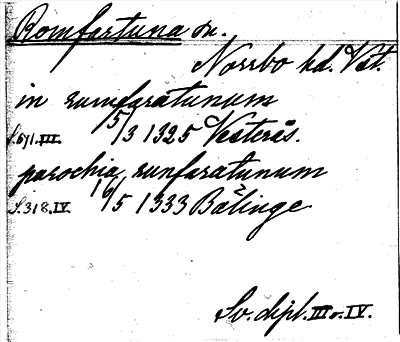 Romfartuna sn.
Norrbo hd. Vst.
in rumfaratunum
S.671.III. 5/3 1325 Vesterås.
parochia runfaratunum
S.318.IV. 16/5 1333 Bälinge
Sv. dipl. III o. IV.